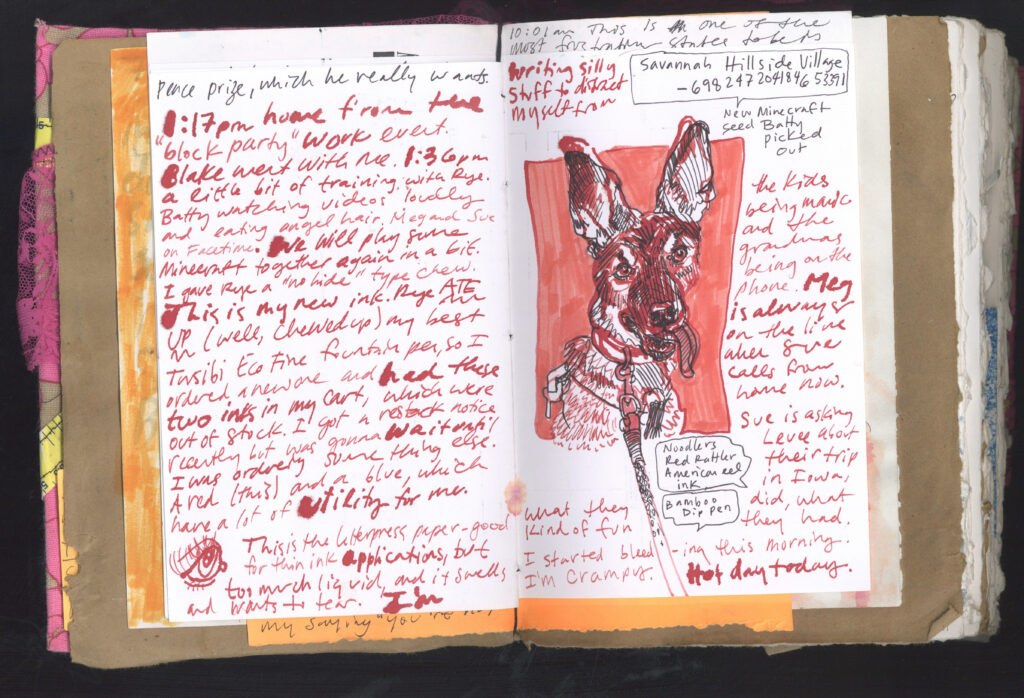 Peace prize, which he really wants.
1:17pm home from the
"block party" work event.
Blake went with me. 1:36pm
a little bit of training with Rye.
Batty watching videos loudly
and eating angel hair, Meg and Sue
on Facetime. We will play some
Minecraft together again in a bit.
I gave Rye a "no hide" type chew.
This is my new ink. Rye ATE
UP (well, chewed up) my best
Twsbi Eco Fine fountain pen, so I
ordered a new one and had these
two inks in my cart, which were
out of stock. I got a restock notice
recently but was gonna wait until
I was ordering something else.
A red (this) and a blue, which
have a lot of utility for me.
This is the letterpress paper - good
for thin ink applications, but
too much liquid, and it swells
and wants to tear. I'm
my saying "you're
10:01am This is one of the
most frustration states to be in
Writing silly
stuff to distract
myself from
Savannah Hillside Village
-6982472041846 53391
New Minecraft
seed Batty
picked
out
the kids
being manic
and the
grandmas
being on the
phone. Meg
is always
on the line
when Sue
calls from
home now.
Sue is asking
Leve about
their trip
in Iowa,
did, what
they had.
Noodlers
Red Rattler
American eel
ink
Bamboo
Dip Pen
what they
kind of fun
I started bleed-ing this morning.
I'm crampy. Hot day today.